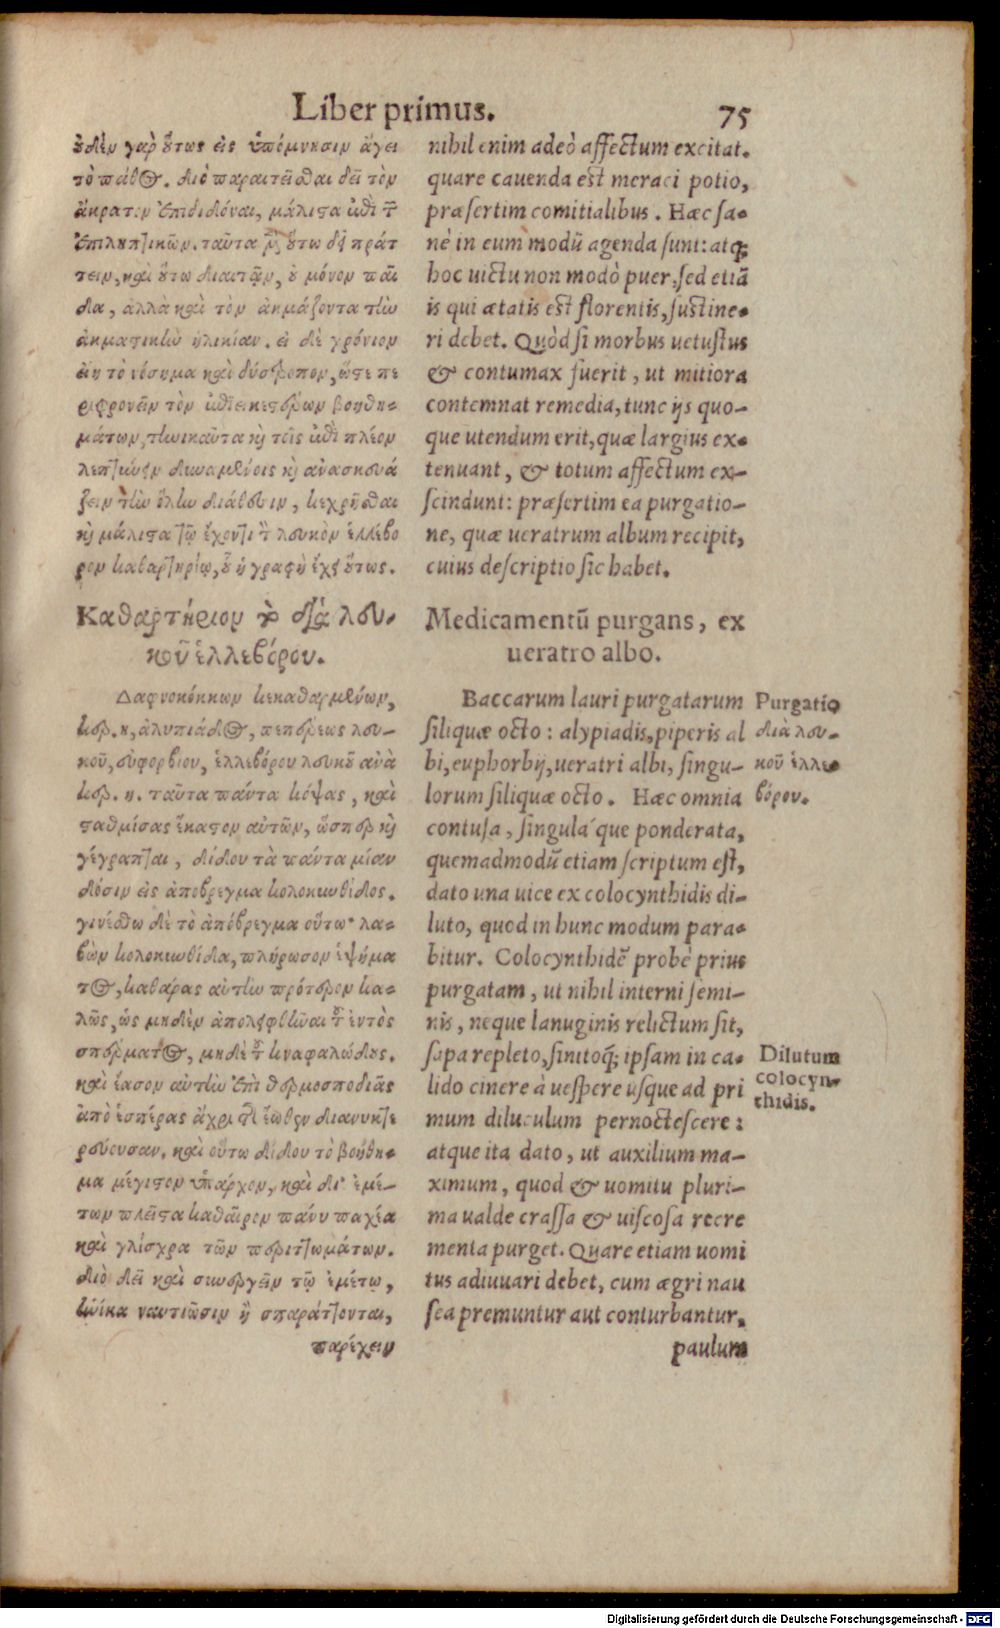 Liber primus. 75
ȣδὲν γαρ ȣ̓́τως εἰς ὑπόμνησιν ἄγει
τὸ πάθος. διὸ παραιτεῖσθαι δεῖ τὸν
ἄκρατον ἐπιδιδόναι, μάλιστα ἐπὶ τ̃
ἐπιληπτικῶν. ταῦτα μὲν ȣ̓́τω δεῖ πράτ
τειν, καὶ ȣ̓́τω διαιτᾷν, ȣ̓ μόνον παῖ
δα, ἀλλὰ καὶ τὸν ἀκμάζοντα τὴν
ἀκμαστικὴν ἡλικίαν. εἰ δὲ χρόνιον
εἴη τὸ νόσημα καὶ δύστροπον, ὥστε πε
ριφρονεῖν τὸν ἐπιεικεστέρων βοηθη-
μάτων, τηνικαῦτα κỳ τοῖς ἐπὶ πλέον
λεπτύνειν δυναμένοις κỳ ἀνασκευά
ζειν τὴν ὅλην διάθεσιν, κεχρῆσθαι
κỳ μάλιστα τῷ ἔχοντι τ̀ λευκὸν ἑλλέβο
ρον καθαρτηρίῳ, ȣ̔͂ ἡ γραφὴ ἔχει ȣ̓́τως.
Καθαρτήριον τὸ διὰ λευ-
κοῦ ἑλλεβόρου.
Δαφνοκόκκων κεκαθαρμένων,
κερ. η, ἀλυπιάδος, πεπέρεως λευ-
κοῦ, εὐφορβίου, ἑλλεβόρου λευκοῦ ἀνὰ
κερ. η. ταῦτα πάντα κόψας, καὶ
σταθμίσας ἕκαστον αὐτῶν, ὥσπερ κỳ
γέγραπται, δίδου τὰ πάντα μίαν
δόσιν εἰς ἀπόβρεγμα κολοκυνθίδος.
γινέσθω δὲ τὸ ἀπόβρεγμα οὕτω· λα-
βὼν κολοκυνθίδα, πλήρωσον ἑψήμα
τος, καθάρας αὐτὴν πρότερον κα-
λῶς, ὡς μηδὲν ἀπολειφθῆναι τȣ͂ ἐντὸς
σπέρματος, μηδὲ τȣ͂ κναφαλώδȣς.
καὶ ἔασον αὐτὴν ἐπὶ θερμοσποδιᾶς
ἀπὸ ἑσπέρας ἄχρι τȣ͂ ἕωθεν διανυκτε
ρεύουσαν. καὶ οὕτω δίδου τὸ βοήθη-
μα μέγιστον ὑπάρχον, καὶ δι’ ἐμέ-
των πλεῖστα καθαῖρον πάνυ παχέα
καὶ γλίσχρα τῶν περιττωμάτων.
διὸ δεῖ καὶ συνεργεῖν τῷ ἐμέτῳ,
ἡνίκα ναυτιῶσιν ἢ σπαράττονται,
παρέχειν
nihil enim adeò affectum excitat.
quare cauenda est meraci potio,
præsertim comitialibus. Hæc sa-
nè in eum modũ agenda sunt: atq;
hoc uictu non modò puer, sed etiã
is qui ætatis est florentis, sustine-
ri debet. Quòd si morbus uetustus
& contumax fuerit, ut mitiora
contemnat remedia, tunc ijs quo-
que utendum erit, quæ largius ex-
tenuant, & totum affectum ex-
scindunt: præsertim ea purgatio-
ne, quæ ueratrum album recipit,
cuius descriptio sic habet.
Medicamentũ purgans, ex
ueratro albo.
Baccarum lauri purgatarum
siliquæ octo: alypiadis, piperis al
bi, euphorbij, ueratri albi, singu-
lorum siliquæ octo. Hæc omnia
contusa, singula´que ponderata,
quemadmodũ etiam scriptum est,
dato una uice ex colocynthidis di-
luto, quod in hunc modum para-
bitur. Colocynthidẽ probè prius
purgatam, ut nihil interni semi-
nis, neque lanuginis relictum sit,
sapa repleto, sinitoq; ipsam in ca-
lido cinere à uespere usque ad pri
mum diluculum pernoctescere:
atque ita dato, ut auxilium ma-
ximum, quod & uomitu pluri-
ma ualde crassa & uiscosa recre
menta purget. Quare etiam uomi
tus adiuuari debet, cum ægri nau
sea premuntur aut conturbantur,
paulum
Purgatio
διὰ λευ-
κοῦ ἑλλε-
βόρου.
Dilutum
colocyn-
thidis.
Digitalisierung gefördert durch die Deutsche Forschungsgemeinschaft - DFG